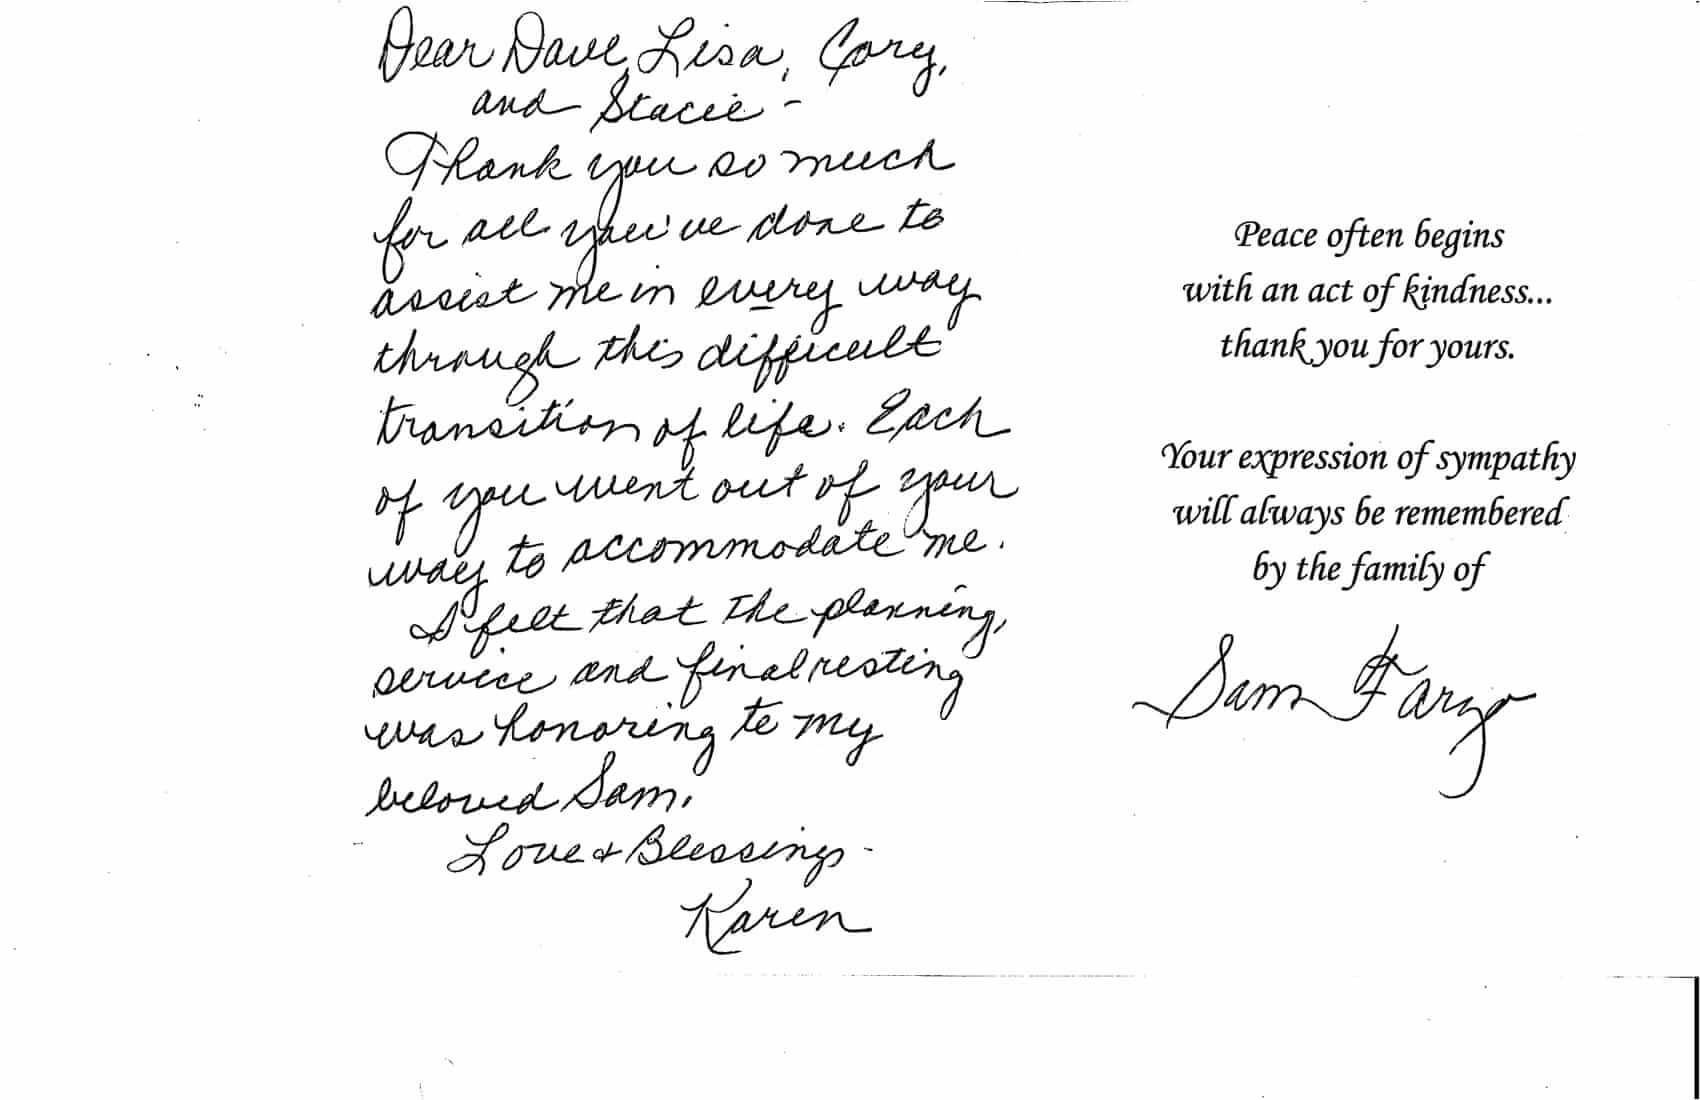 Dear Dave, Lisa, Cory,
and Stacie -
Thank you so much
for all you've done to
assist me in every way
through this difficult
transition of life. Each
of you went out of your
way to accommodate me.
I felt that the planning,
service and final resting
was honoring to my
beloved Sam.
Love & Blessings -
Karen
Peace often begins
with an act of kindness...
thank you for yours.
Your expression of sympathy
will always be remembered
by the family of
Sam Fargo